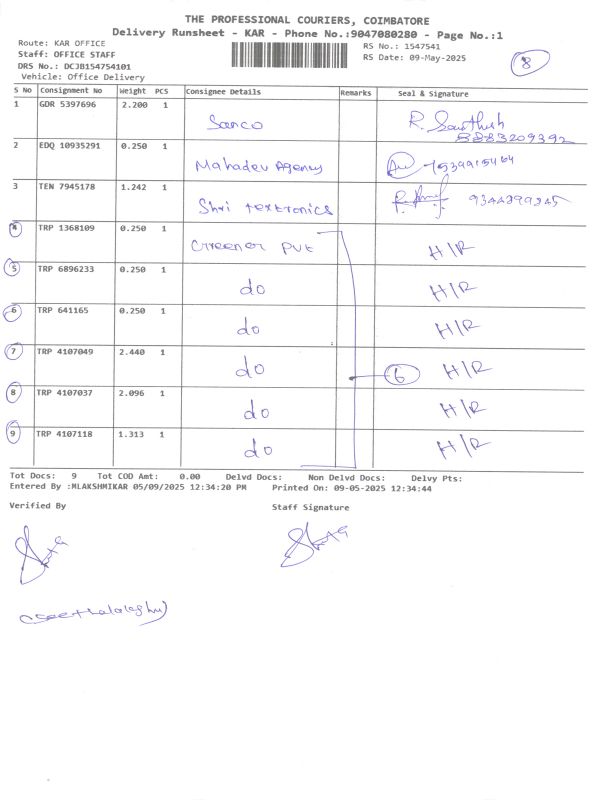 THE PROFESSIONAL COURIERS, COIMBATORE
Delivery Runsheet - KAR - Phone No.:9047080280 - Page No.:1
Route: KAR OFFICE
Staff: OFFICE STAFF
DRS No.: DCJB154754101
Vehicle: Office Delivery
RS No.: 1547541
RS Date: 09-May-2025
8
S No Consignment No Weight PCS Consignee Details Remarks Seal & Signature
1 GDR 5397696 2.200 1 Sanco R. Santhosh
8883209392
2 EDQ 10935291 0.250 1 Mahadev Agency
3 TEN 7945178 1.242 1 Shri textronics 9344399345
4 TRP 1368109 0.250 1 Greener Pvt H/R
5 TRP 6896233 0.250 1 do H/R
6 TRP 641165 0.250 1 do H/R
7 TRP 4107049 2.440 1 do 6 H/R
8 TRP 4107037 2.096 1 do H/R
9 TRP 4107118 1.313 1 do H/R
Tot Docs: 9 Tot COD Amt: 0.00 Delvd Docs: Non Delvd Docs: Delvy Pts:
Entered By :MLAKSHMIKAR 05/09/2025 12:34:20 PM Printed On: 09-05-2025 12:34:44
Verified By Staff Signature